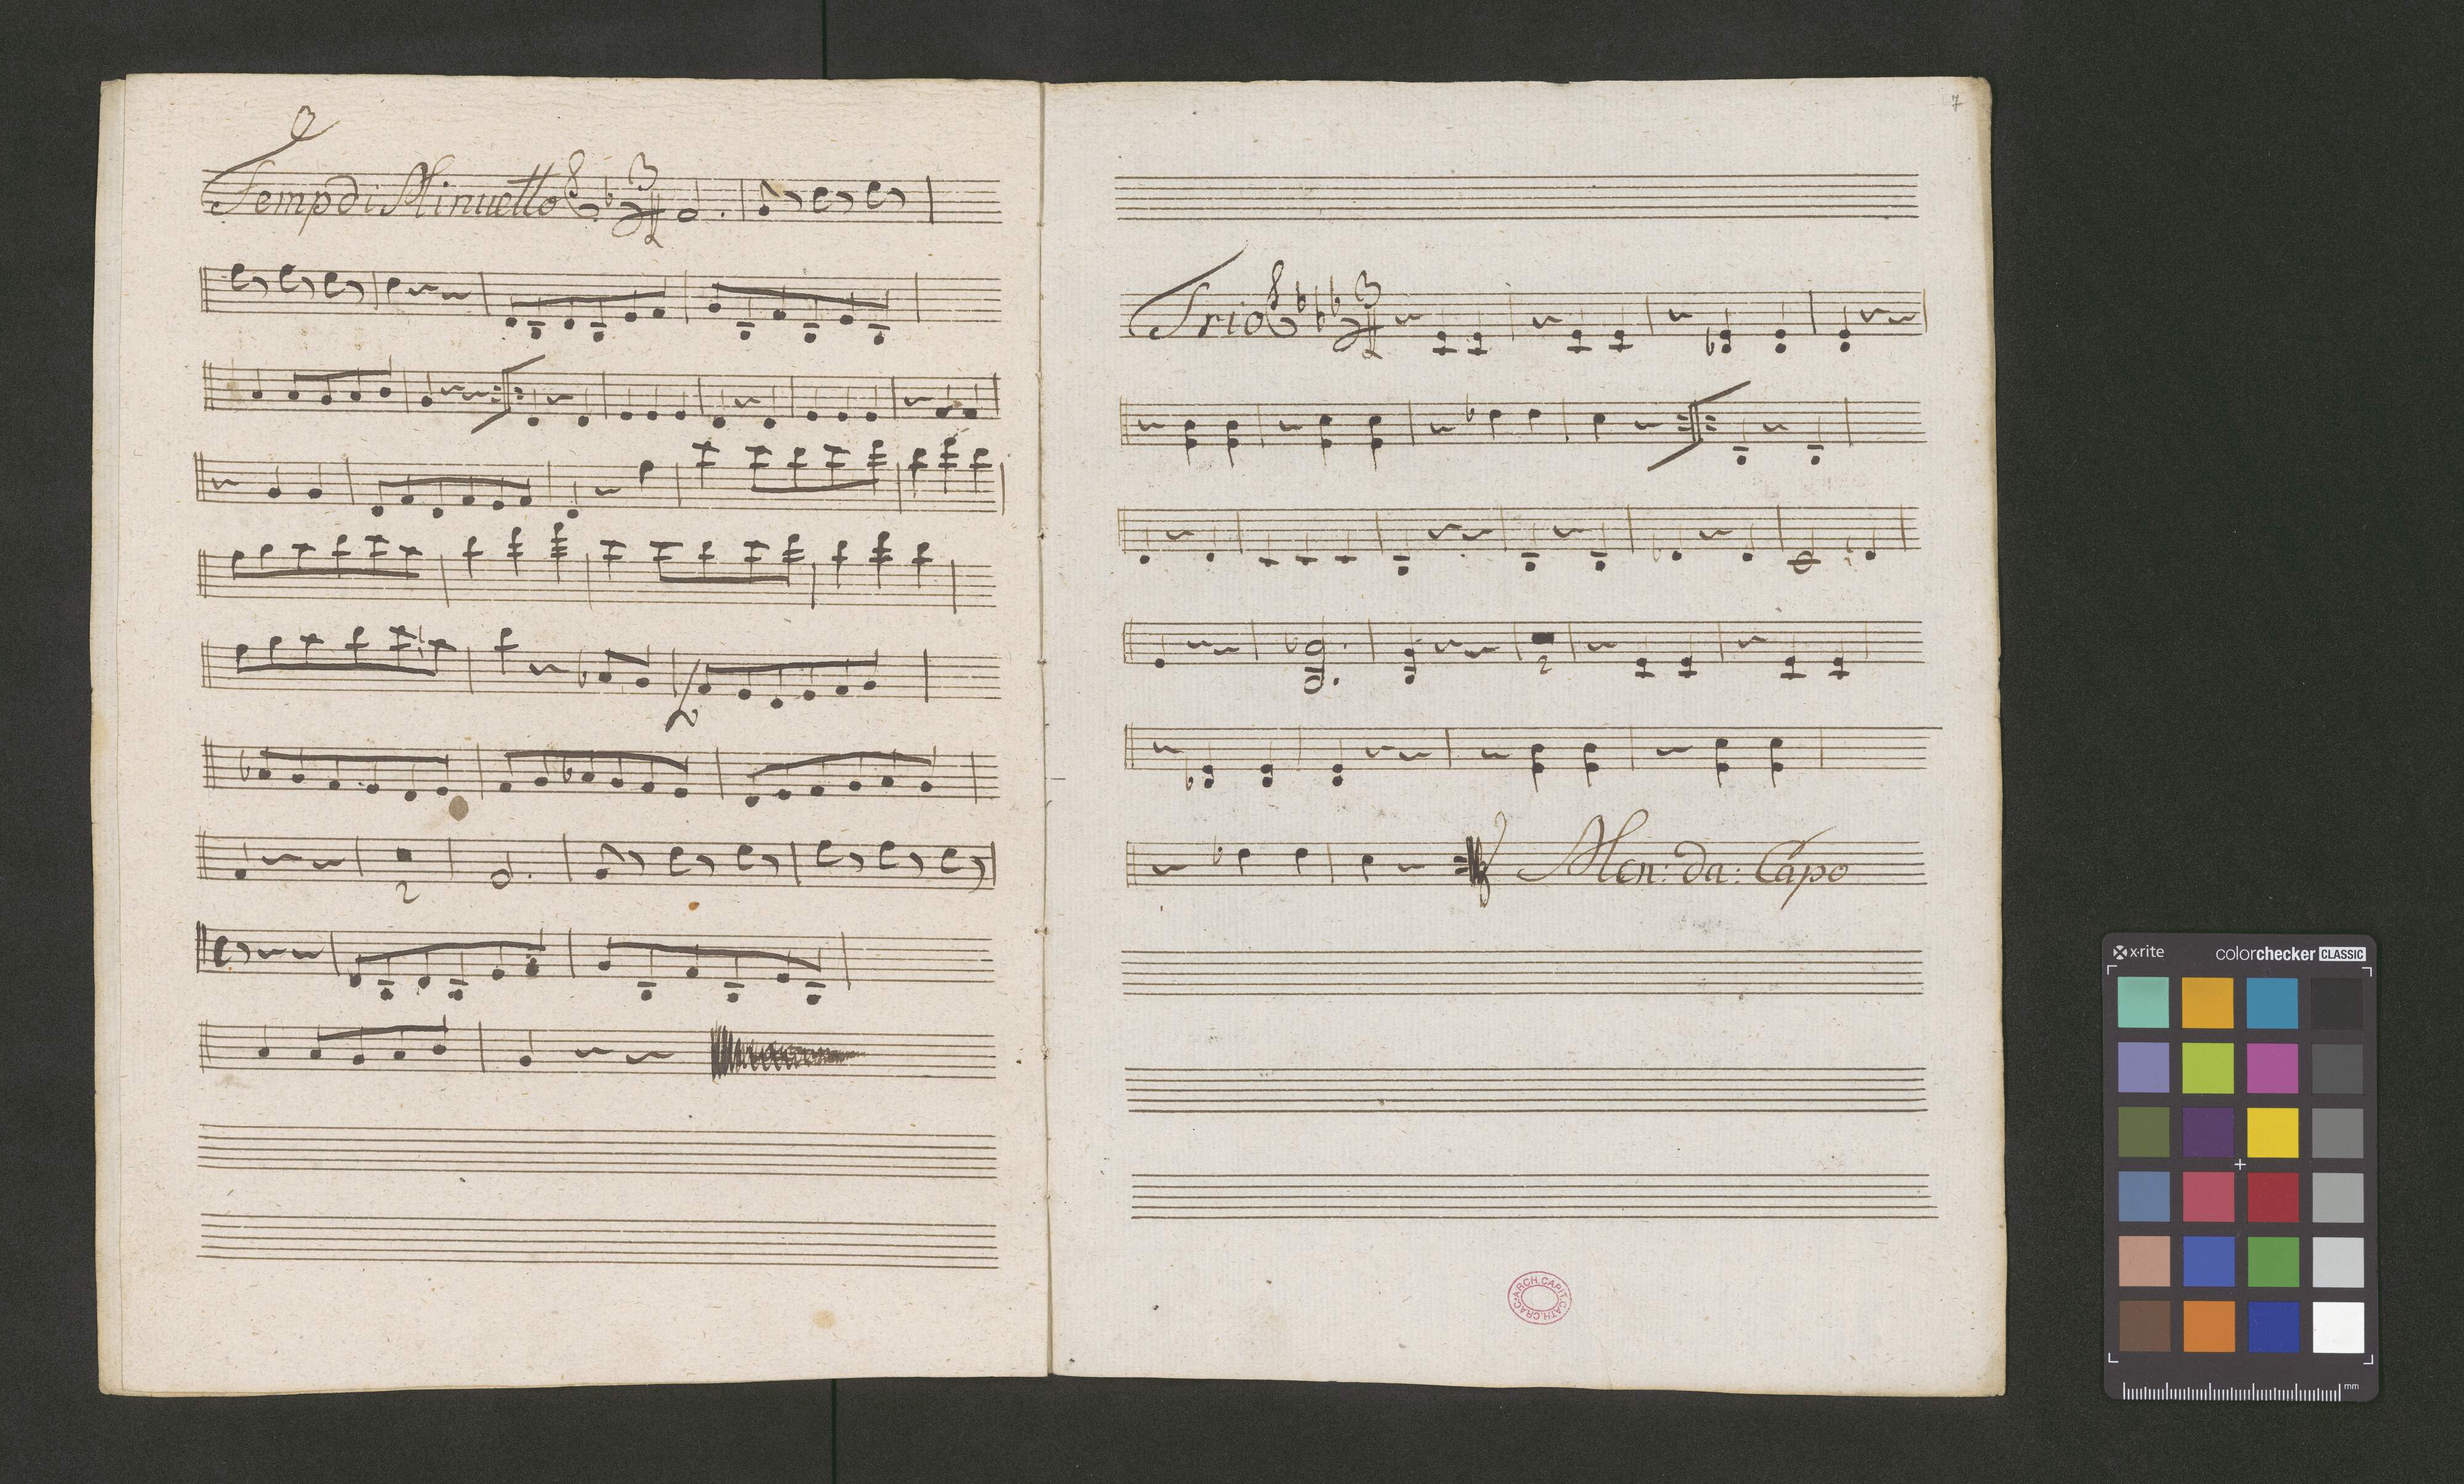 Tempo di Minuetto 3 4
2
7
Trio 3 4
2
Men: da: Capo
ARCH. CAPIT. CATH. CRAC.
x·rite colorchecker CLASSIC
mm